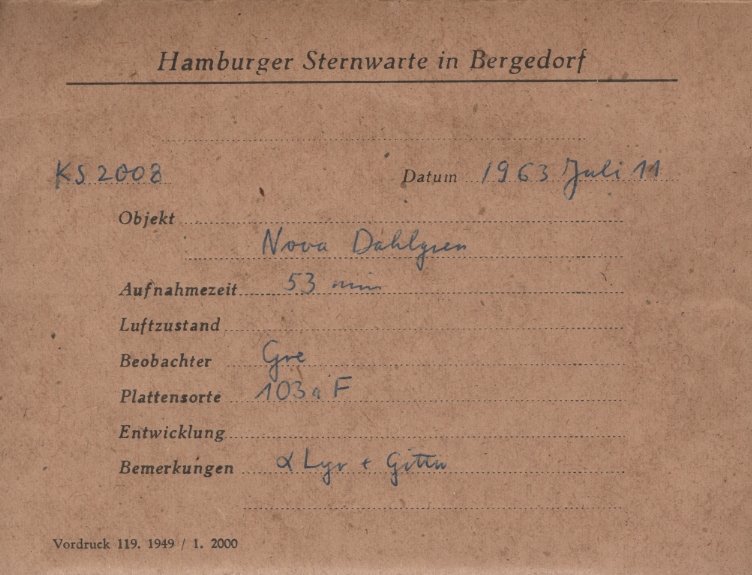 Hamburger Sternwarte in Bergedorf
KS 2008 Datum 1963 Juli 11
Objekt
Nova Dahlgren
Aufnahmezeit 53 min
Luftzustand
Beobachter Gre
Plattensorte 103a F
Entwicklung
Bemerkungen α Lyr + Gitter
Vordruck 119. 1949 / 1. 2000